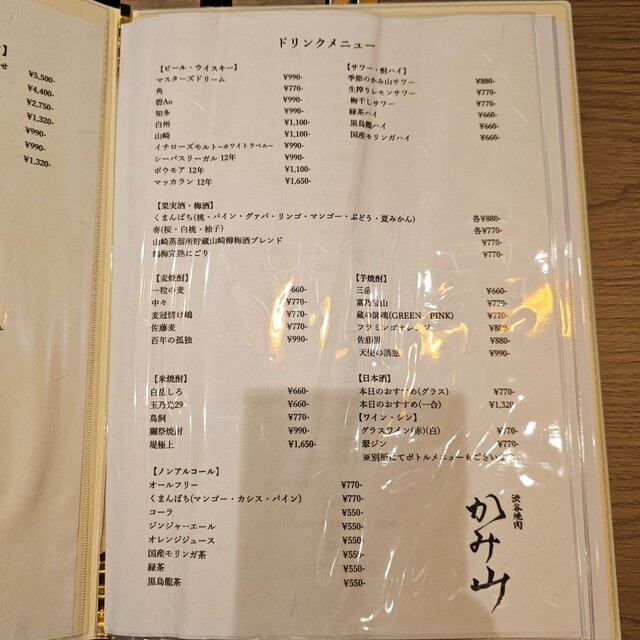 】
せ
¥5,500-
¥4,400-
¥2,750-
¥1,320-
¥990-
¥990-
¥1,320-
ドリンクメニュー
【ビール・ウイスキー】
マスターズドリーム ¥990-
角 ¥770-
碧Ao ¥990-
知多 ¥990-
白州 ¥1,100-
山崎 ¥1,100-
イチローズモルト~ホワイトラベル~ ¥990-
シーバスリーガル 12年 ¥990-
ボウモア 12年 ¥1,100-
マッカラン 12年 ¥1,650-
【サワー・酎ハイ】
季節のかみ山サワー ¥880-
生搾りレモンサワー ¥770-
梅干しサワー ¥770-
緑茶ハイ ¥660-
黒烏龍ハイ ¥660-
国産モリンガハイ ¥660-
【果実酒・梅酒】
くまんばち(桃・パイン・グァバ・リンゴ・マンゴー・ぶどう・夏みかん) 各¥880-
奏(桜・白桃・柚子) 各¥770-
山崎蒸溜所貯蔵山崎樽梅酒ブレンド ¥770-
鶴梅完熟にごり ¥770-
【麦焼酎】
一粒の麦 ¥660-
中々 ¥770-
麦冠情け嶋 ¥770-
佐藤麦 ¥770-
百年の孤独 ¥990-
【芋焼酎】
三岳 ¥660-
富乃宝山 ¥770-
蔵の師魂(GREEN PINK) ¥770-
フラミンゴオレンジ ¥880-
佐藤黒 ¥880-
天使の誘惑 ¥990-
【米焼酎】
白岳しろ ¥660-
玉乃光29 ¥660-
鳥飼 ¥770-
獺祭焼酎 ¥990-
堤極上 ¥1,650-
【日本酒】
本日のおすすめ(グラス) ¥770-
本日のおすすめ(一合) ¥1,320
【ワイン・ジン】
グラスワイン(赤)(白) ¥770-
翠ジン ¥770-
※別紙にてボトルメニューもございます
【ノンアルコール】
オールフリー ¥770-
くまんばち(マンゴー・カシス・パイン) ¥770-
コーラ ¥550-
ジンジャーエール ¥550-
オレンジジュース ¥550
国産モリンガ茶 ¥550-
緑茶 ¥550-
黒烏龍茶 ¥550-
渋谷焼肉
かみ山